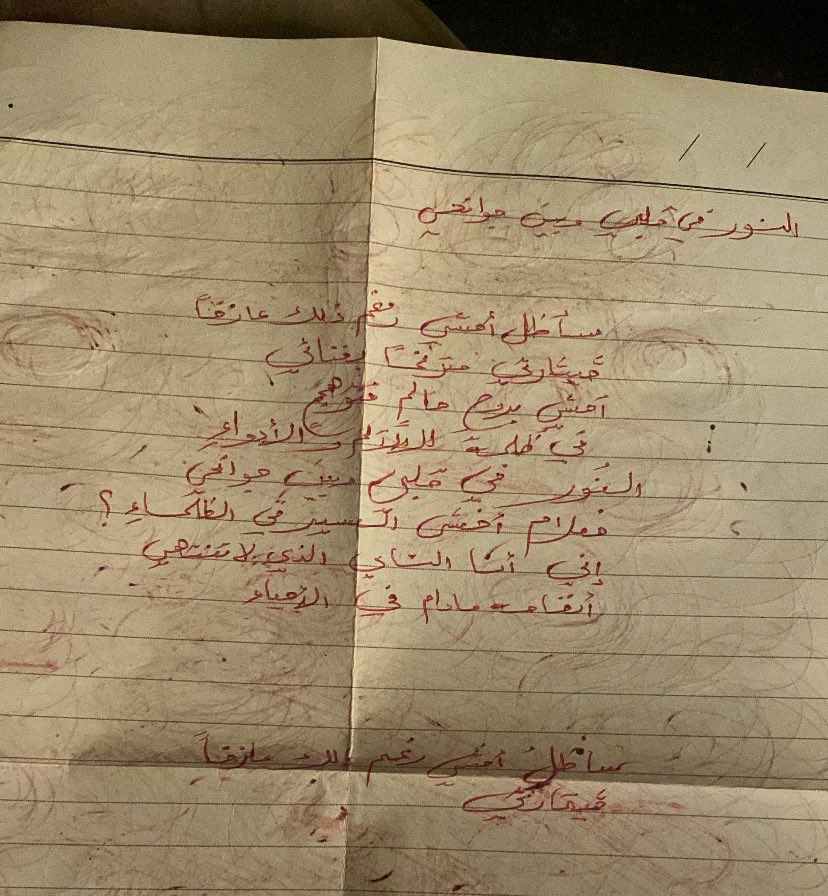 النور في قلبي وبين جوانحي
سأظل أمشي رغم ذلك عازفاً
قيثارتي مترنماً بغنائي
أمشي بروح حالم متوهج
في ظلمة الآلام والأدواءِ
النور في قلبي وبين جوانحي
فعلام أخشى السير في الظلماءِ؟
إني أنا الناي الذي لا تنتهي
أنغامه مادام في الأحياء
سأظل أمشي رغم ذلك عازفاً
قيثارتي